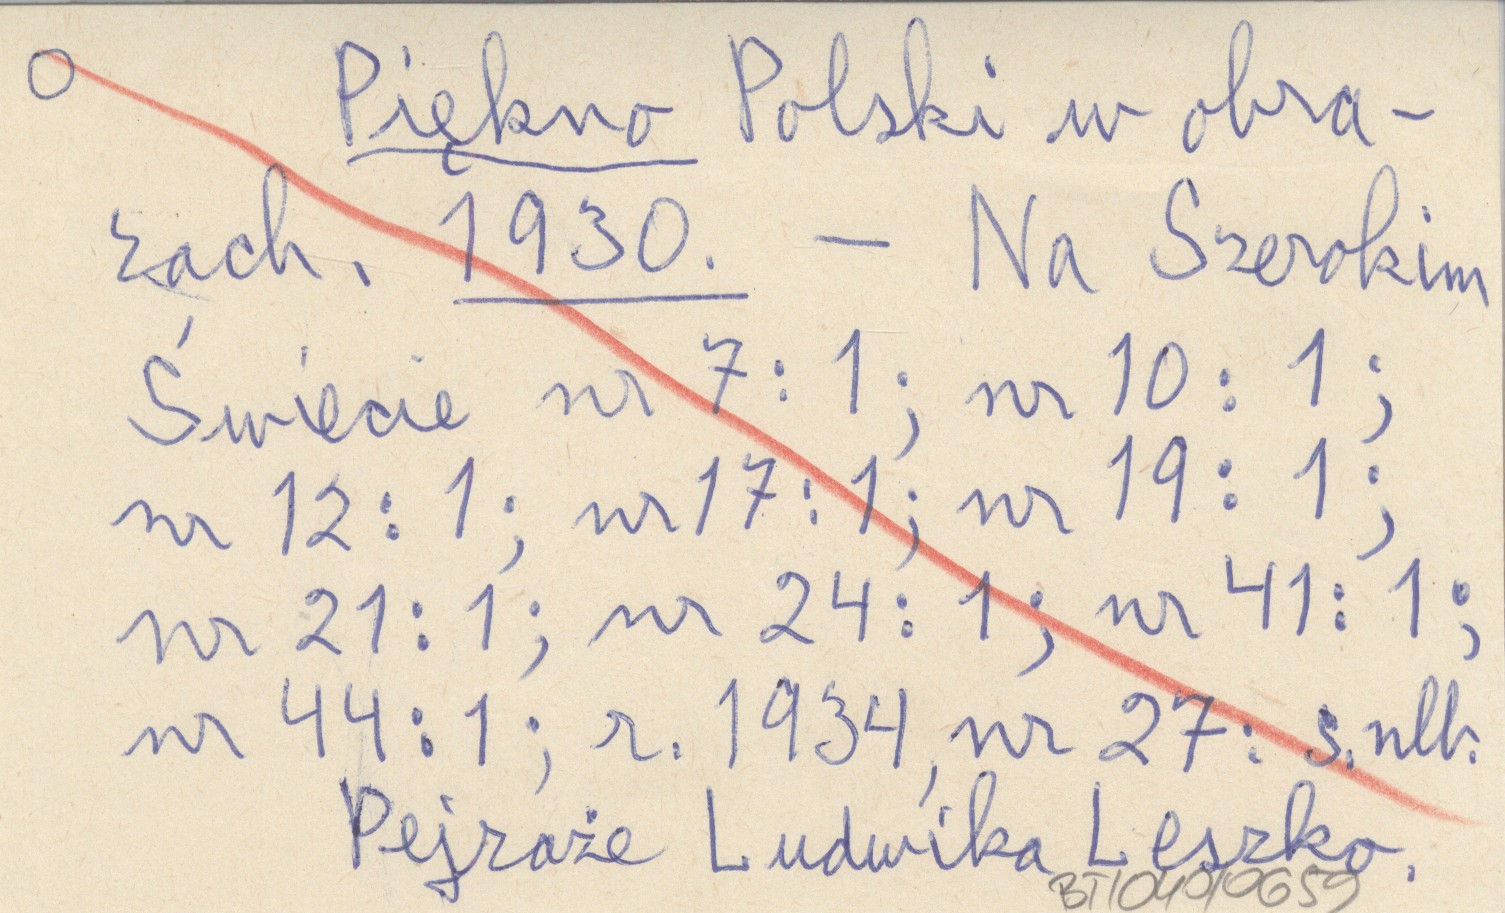 O Piękno Polski w obra-
zach. 1930. — Na Szerokim
Świecie nr 7: 1; nr 10: 1;
nr 12: 1; nr 17: 1; nr 19: 1;
nr 21: 1; nr 24: 1; nr 41: 1;
nr 44: 1; r. 1934, nr 27: s. nlb.
Pejzaże Ludwika Leszko.
BT/040/0659